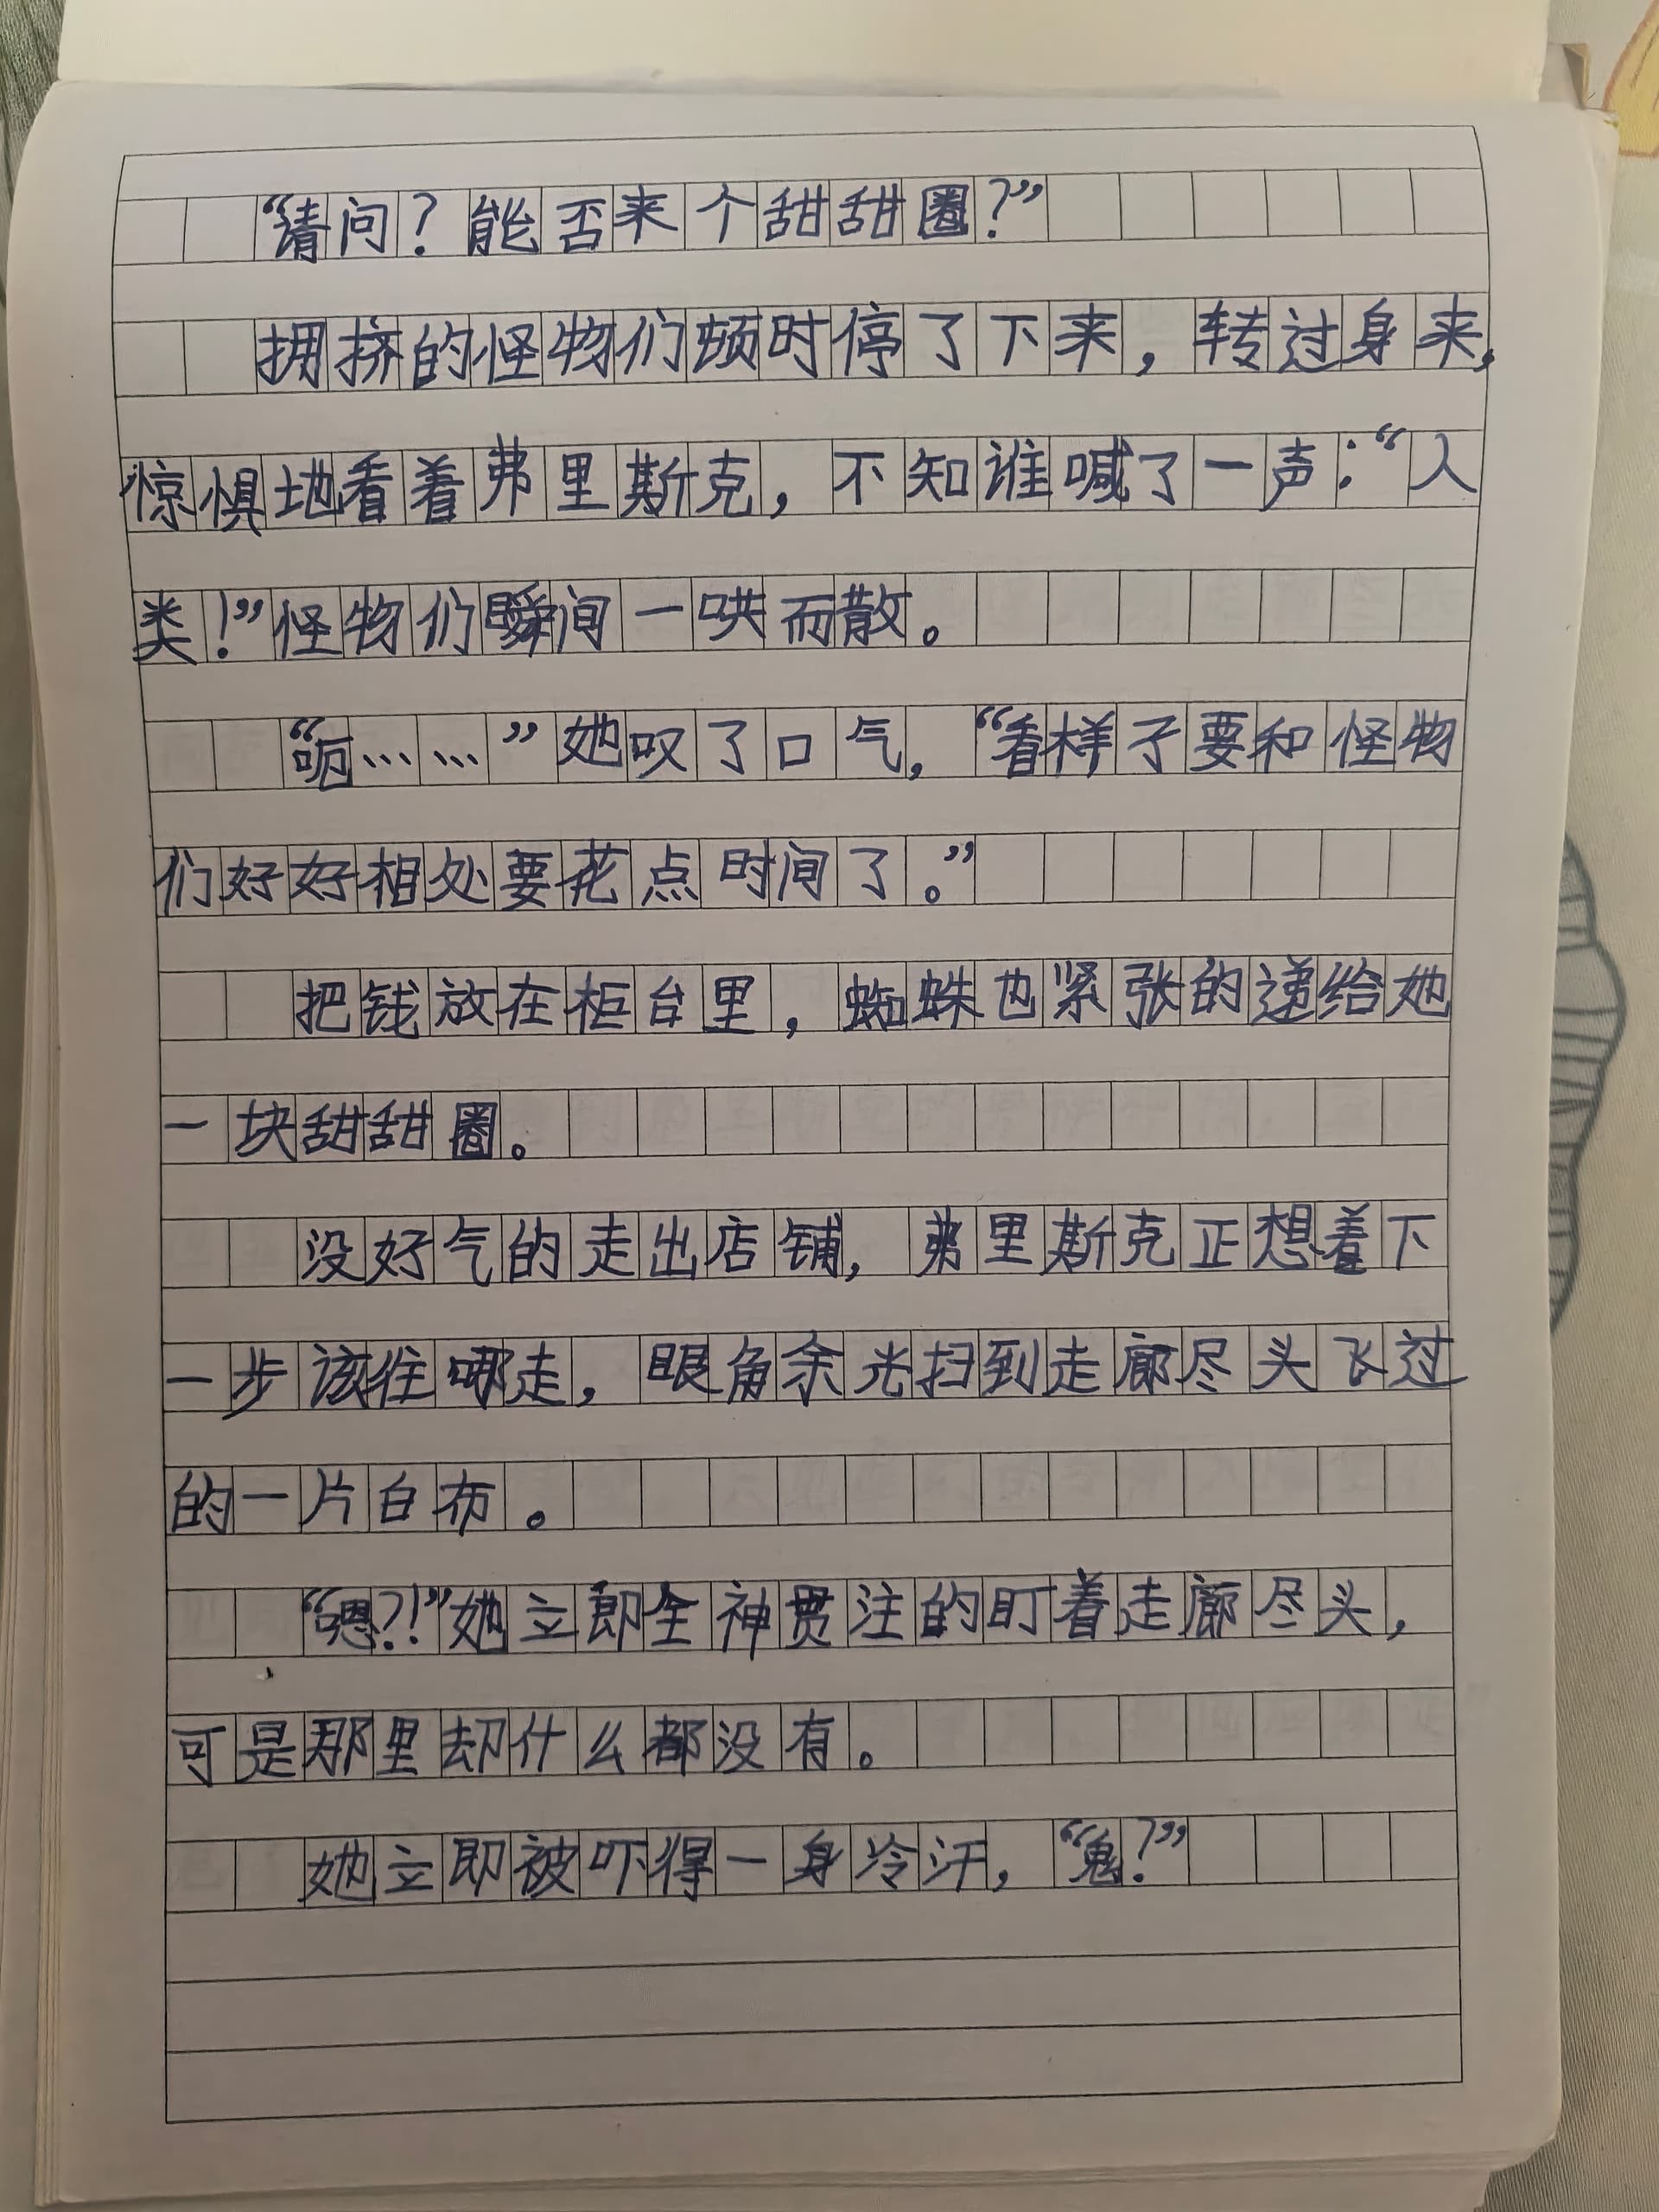 “请问？能否来个甜甜圈？”
拥挤的怪物们顿时停了下来，转过身来，
惊惧地看着弗里斯克，不知谁喊了一声：“人
类！”怪物们瞬间一哄而散。
“呃……”她叹了口气，“看样子要和怪物
们好好相处要花点时间了。”
把钱放在柜台里，蜘蛛也紧张的递给她
一块甜甜圈。
没好气的走出店铺，弗里斯克正想着下
一步该往哪走，眼角余光扫到走廊尽头飞过
的一片白布。
“嗯？！”她立即全神贯注的盯着走廊尽头，
可是那里却什么都没有。
她立即被吓得一身冷汗，“鬼？”